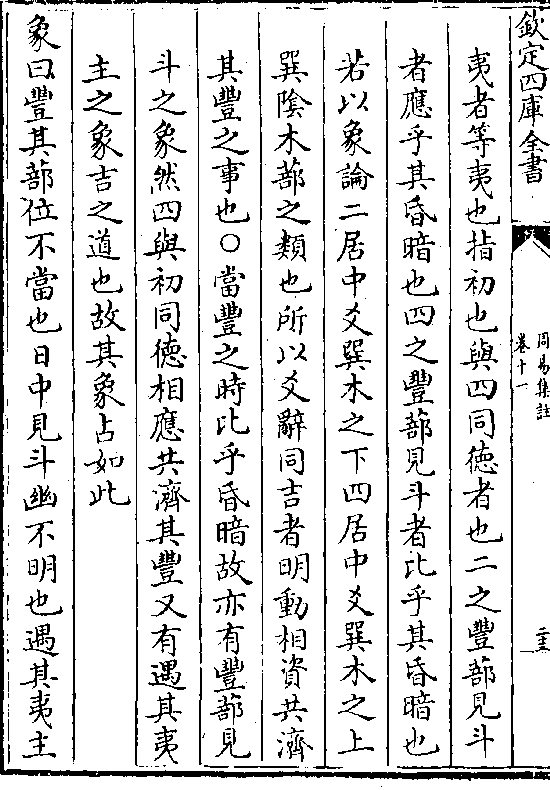 欽定四庫全書
周易集註
卷十一
二十三
夷者等夷也指初也與四同德者也二之豐蔀見斗
者應乎其昏暗也四之豐蔀見斗者比乎其昏暗也
若以象論二居中爻巽木之下四居中爻巽木之上
巽陰木蔀之類也所以爻辭同吉者明動相資共濟
其豐之事也○當豐之時比乎昏暗故亦有豐蔀見
斗之象然四與初同德相應共濟其豐又有遇其夷
主之象吉之道也故其象占如此
象曰豐其蔀位不當也日中見斗幽不明也遇其夷主